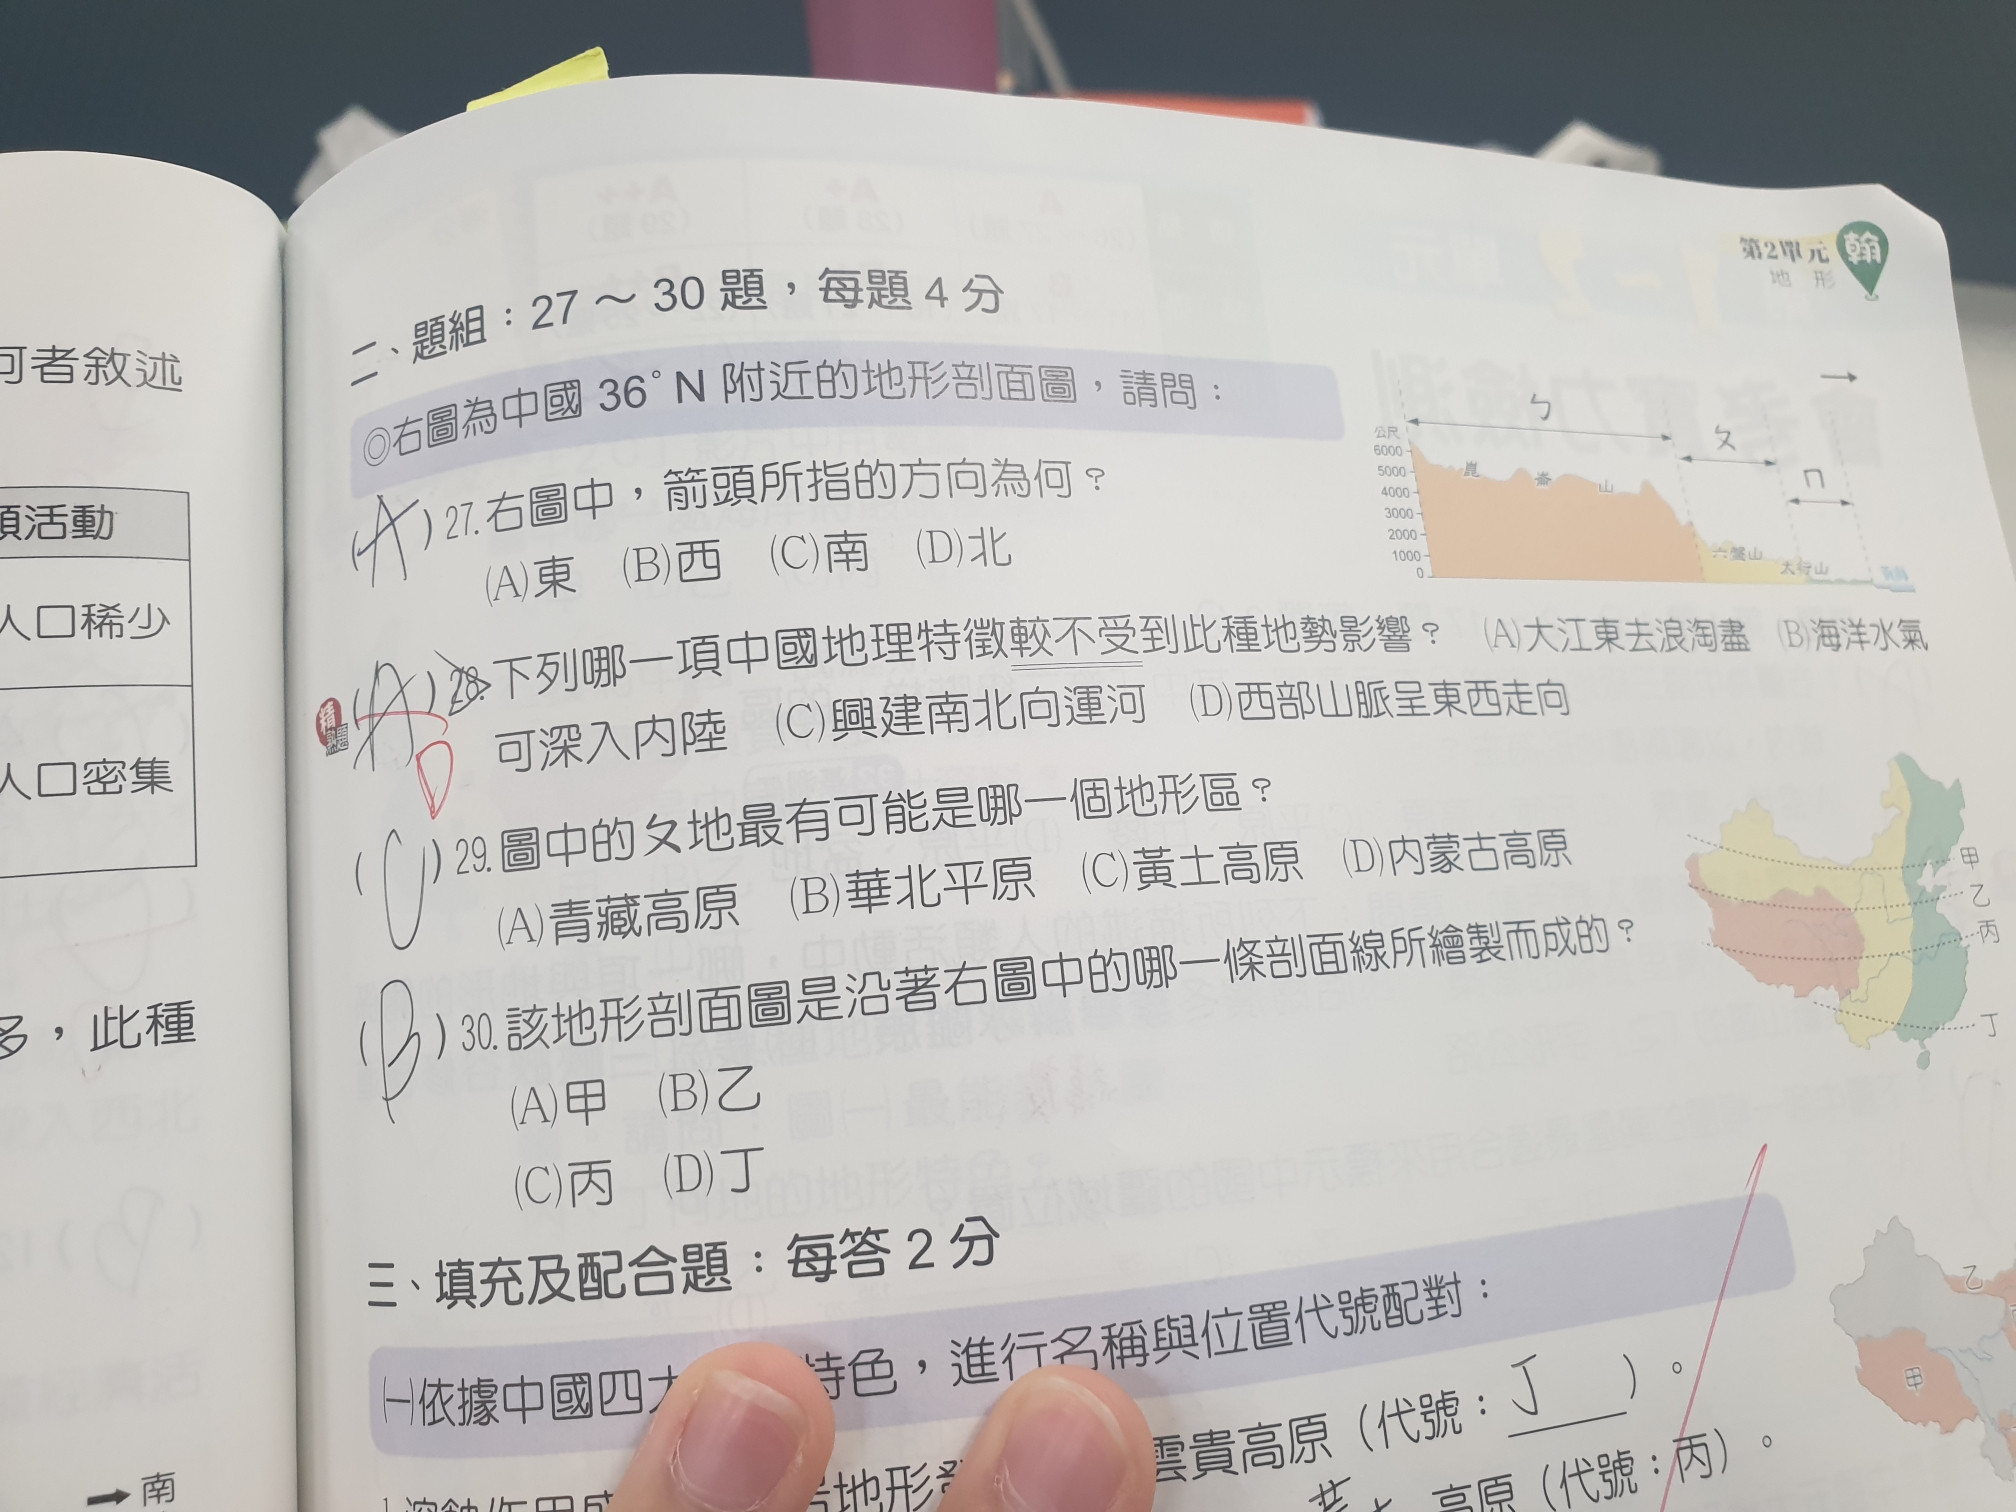 何者敘述
類活動
人口稀少
人口密集
多，此種
南
第2單元
地形
翰
二、題組：27～30題，每題4分
◎右圖為中國36°N附近的地形剖面圖，請問：
(A)27.右圖中，箭頭所指的方向為何？
(A)東 (B)西 (C)南 (D)北
精熟題
(A)28.下列哪一項中國地理特徵較不受到此種地勢影響？ (A)大江東去浪淘盡 (B)海洋水氣
D
可深入內陸 (C)興建南北向運河 (D)西部山脈呈東西走向
(C)29.圖中的ㄆ地最有可能是哪一個地形區？
(A)青藏高原 (B)華北平原 (C)黃土高原 (D)內蒙古高原
(B)30.該地形剖面圖是沿著右圖中的哪一條剖面線所繪製而成的？
(A)甲 (B)乙
(C)丙 (D)丁
公尺
6000
5000
4000
3000
2000
1000
0
ㄅ
ㄆ
ㄇ
崑崙山
六盤山
太行山
黃海
甲
乙
丙
丁
三、填充及配合題：每答2分
㈠依據中國四大 特色，進行名稱與位置代號配對：
雲貴高原（代號：丁）。
高原（代號：丙）。
乙
甲